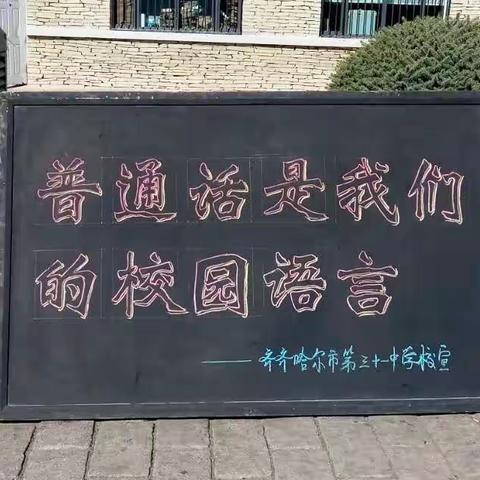 普通话是我们
的校园语言
——齐齐哈尔市第三十一中学校宣